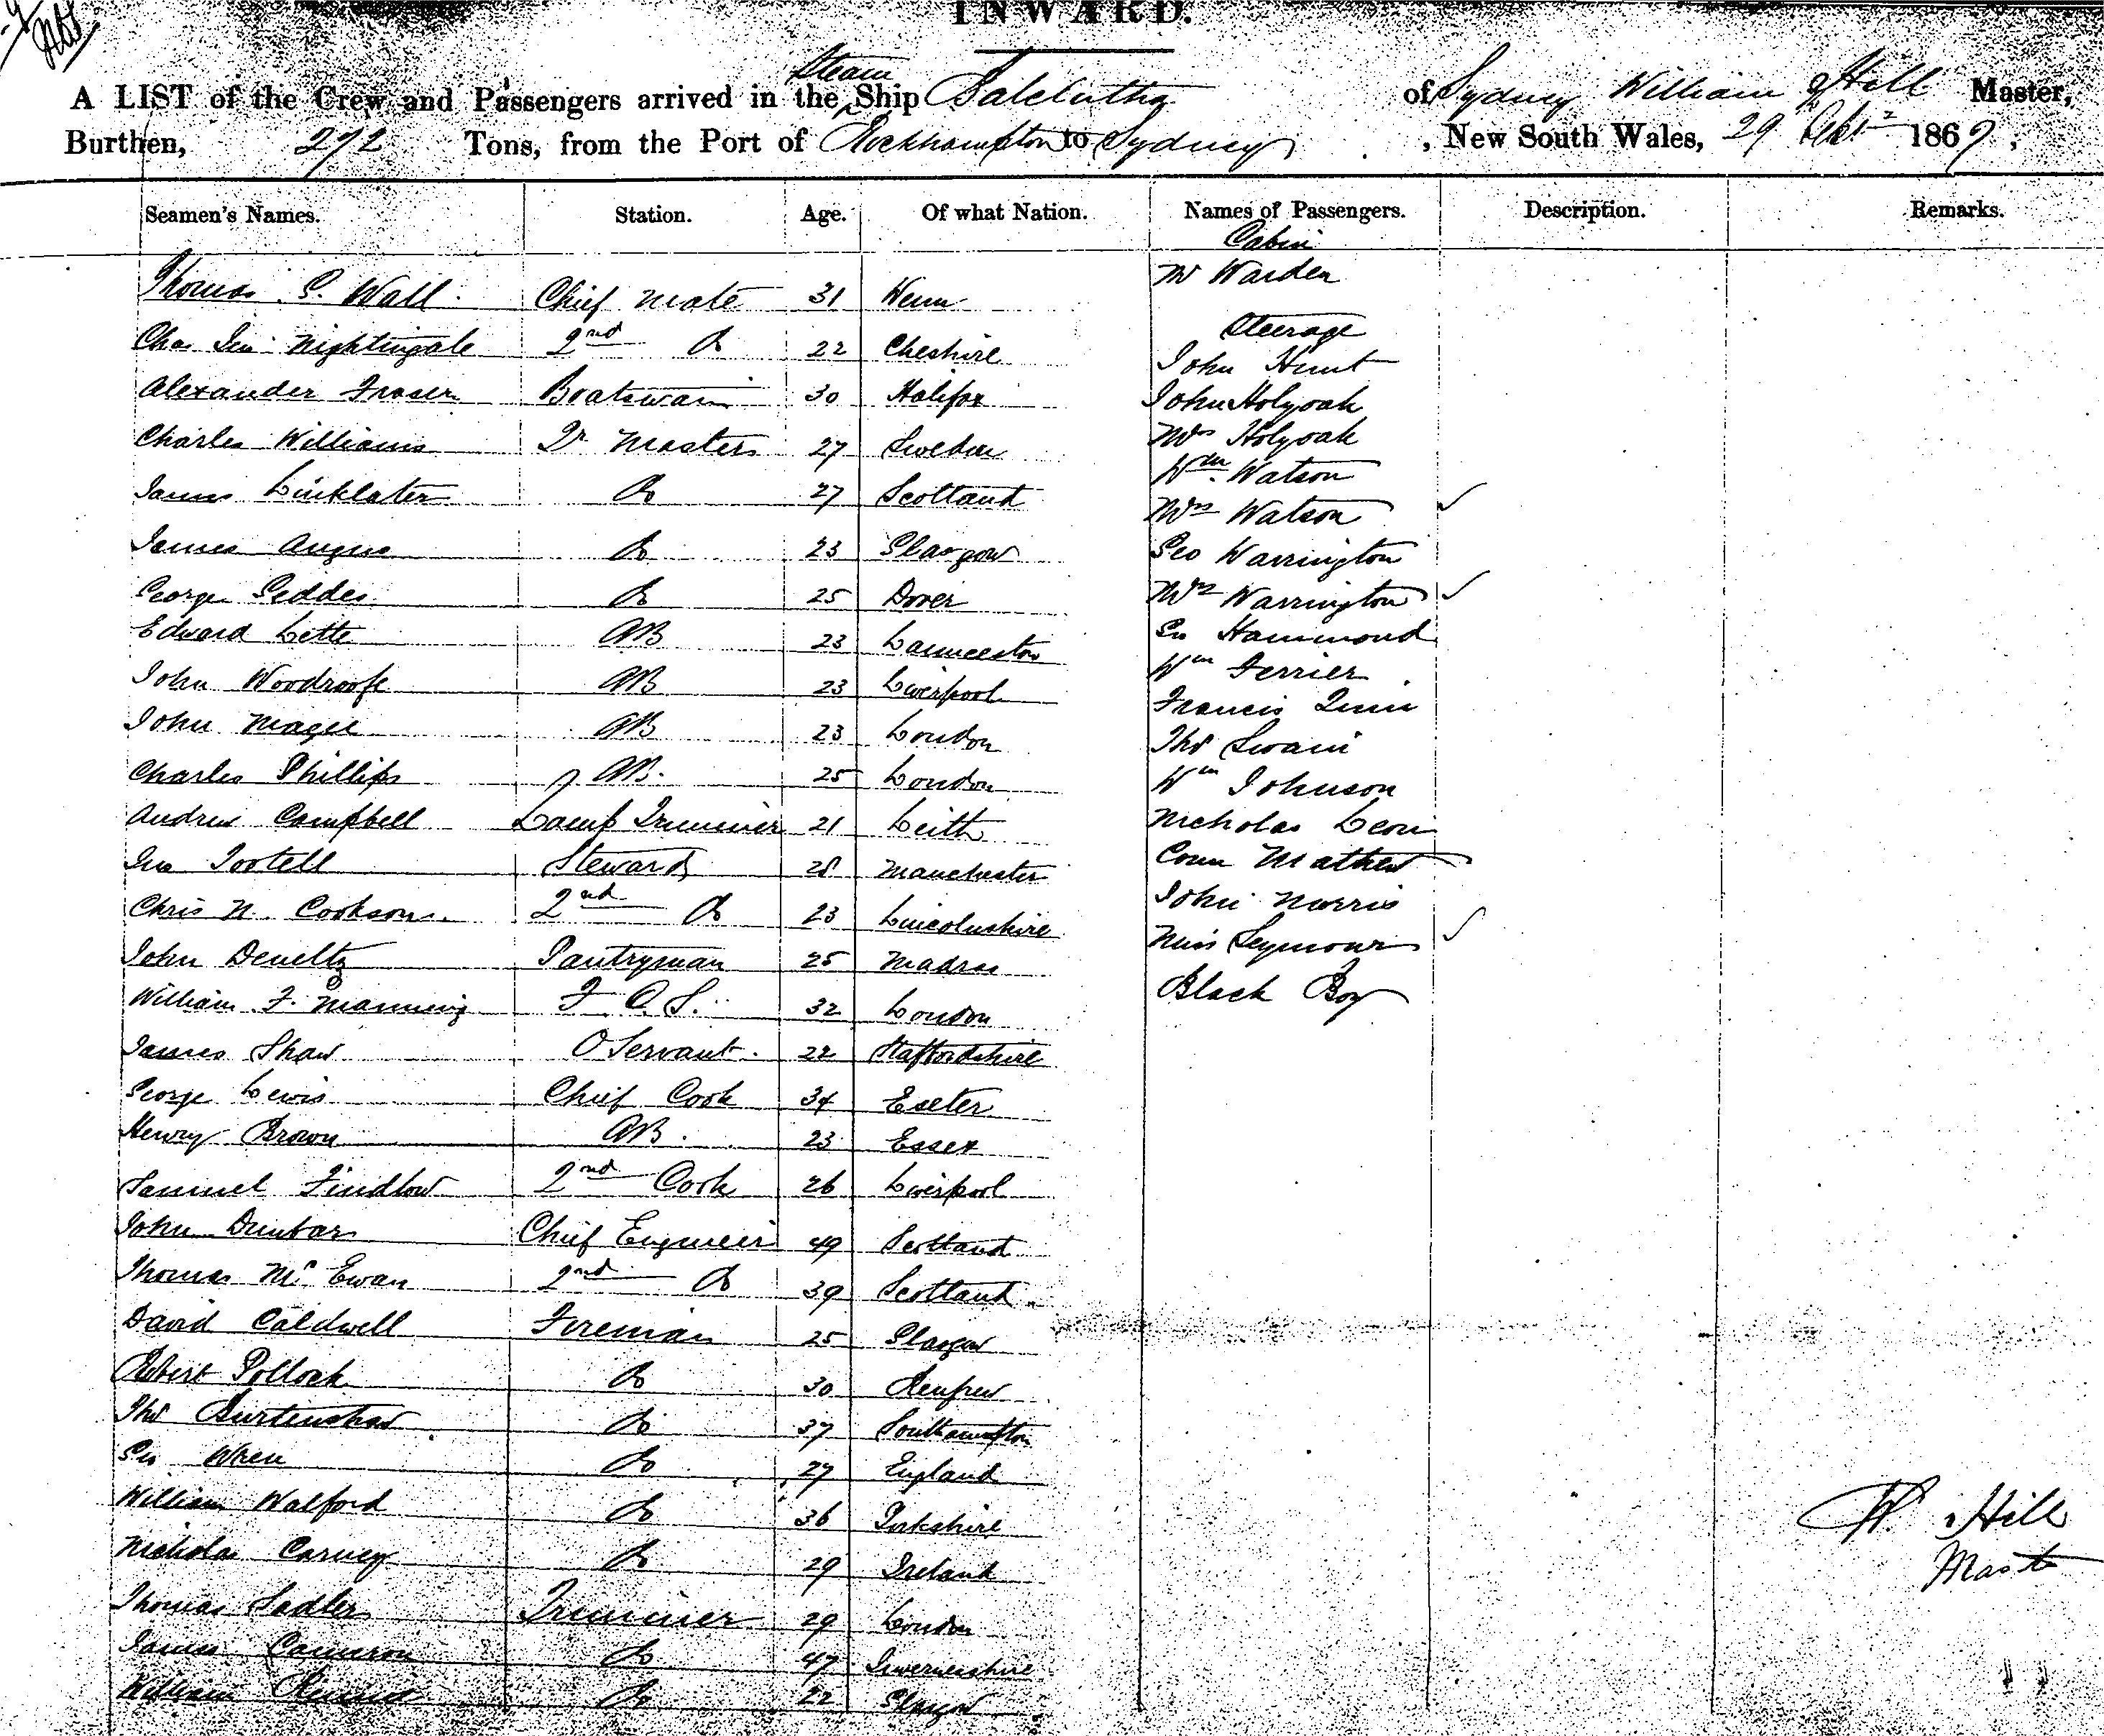 INWARD.
A LIST of the Crew and Passengers arrived in the Steam Ship Balclutha of Sydney William Hill Master,
Burthen, 272 Tons, from the Port of Rockhampton to Sydney, New South Wales, 29 1867,
Seamen's Names. Station. Age. Of what Nation. Names of Passengers. Description. Remarks.
Cabin
Thomas S. Wall Chief Mate 31 Mr Warden
Steerage
Chas Nightingale 2nd Do 22 Cheshire John Hunt
Alexander Fraser Boatswain 30 Halifax John Holyoak
Charles Williams Qr Master 27 Sweden Mrs Holyoak
Wm Watson
James Linklater Do 27 Scotland Mrs Watson
James Angus Do 23 Glasgow Geo Warrington
George Geddes Do 25 Dover Mrs Warrington
Edward Lette AB 23 Launceston Geo Hammond
John Woodroofe AB 23 Liverpool Wm Ferrier
Francis Quin
John Magee AB 23 London Thos Swain
Charles Phillips AB 25 London Wm Johnson
Andrew Campbell Lamp Trimmer 21 Leith Nicholas Leon
Jno Tootell Steward 28 Manchester Conn Mathew
Chris N. Cookson 2nd Do 23 Lincolnshire John Norris
John Deneltz Pantryman 25 Madras Miss Seymour
William F. Manning F. C. S. 32 London Black Boy
James Shaw O Servant 22 Staffordshire
George Lewis Chief Cook 34 Exeter
Henry Brown AB 23 Essex
Samuel Findlow 2nd Cook 26 Liverpool
John Dunbar Chief Engineer 49 Scotland
Thomas Mc Ewan 2nd Do 39 Scotland
David Caldwell Fireman 25 Glasgow
Robert Pollock Do 30 Renfrew
Thos Burtenshaw Do 37 Southampton
Geo Wren Do 27 England
William Walford Do 36 Yorkshire
W. Hill
Nicholas Carney Do 29 Ireland
Mast
Thomas Sadler Trimmer 29 London
James Cameron Do 47 Invernesshire
William Do 22 Glasgow